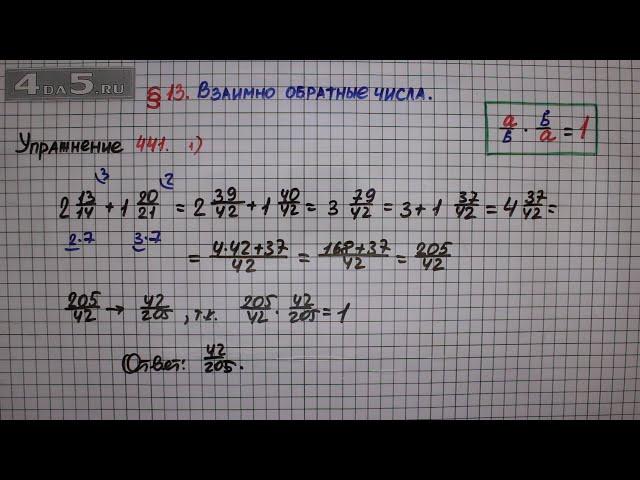 4DA5.RU
§ 13. Взаимно обратные числа.
a/b · b/a = 1
Упражнение 441. 1)
3 2
2 13/14 + 1 20/21 = 2 39/42 + 1 40/42 = 3 79/42 = 3 + 1 37/42 = 4 37/42 =
2·7 3·7
= 4·42+37/42 = 168+37/42 = 205/42
205/42 → 42/205, т.к. 205/42 · 42/205 = 1
Ответ: 42/205.